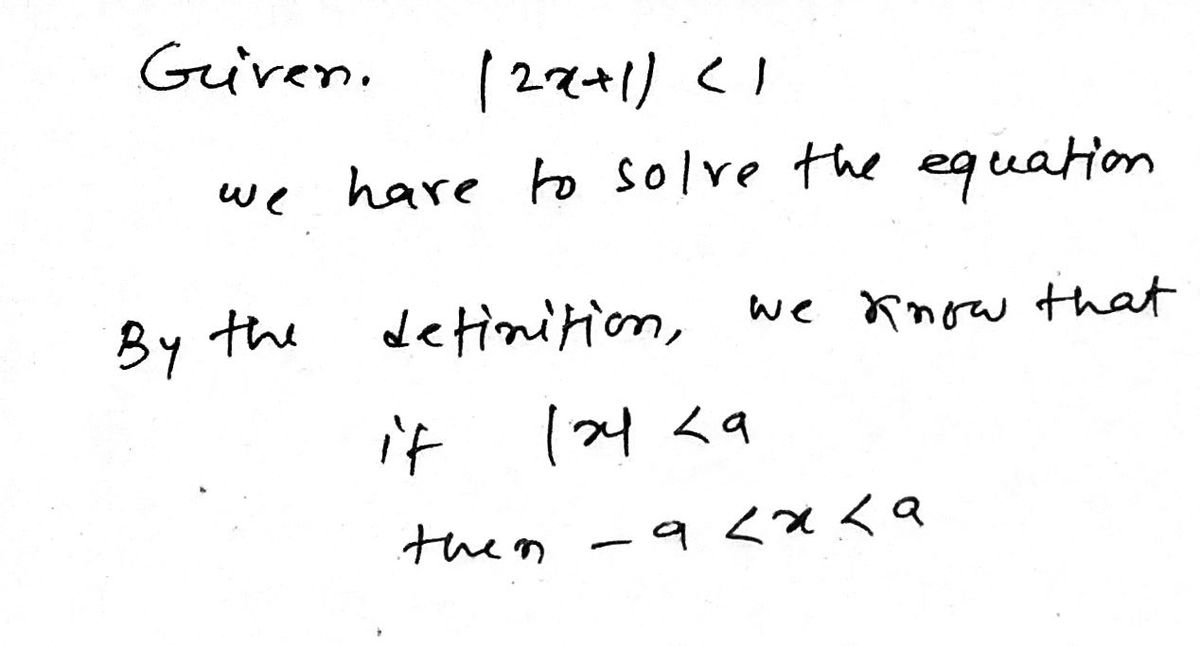 Given. |2x+1| < 1
we have to solve the equation
By the definition, we know that
if |x| < a
then - a < x < a